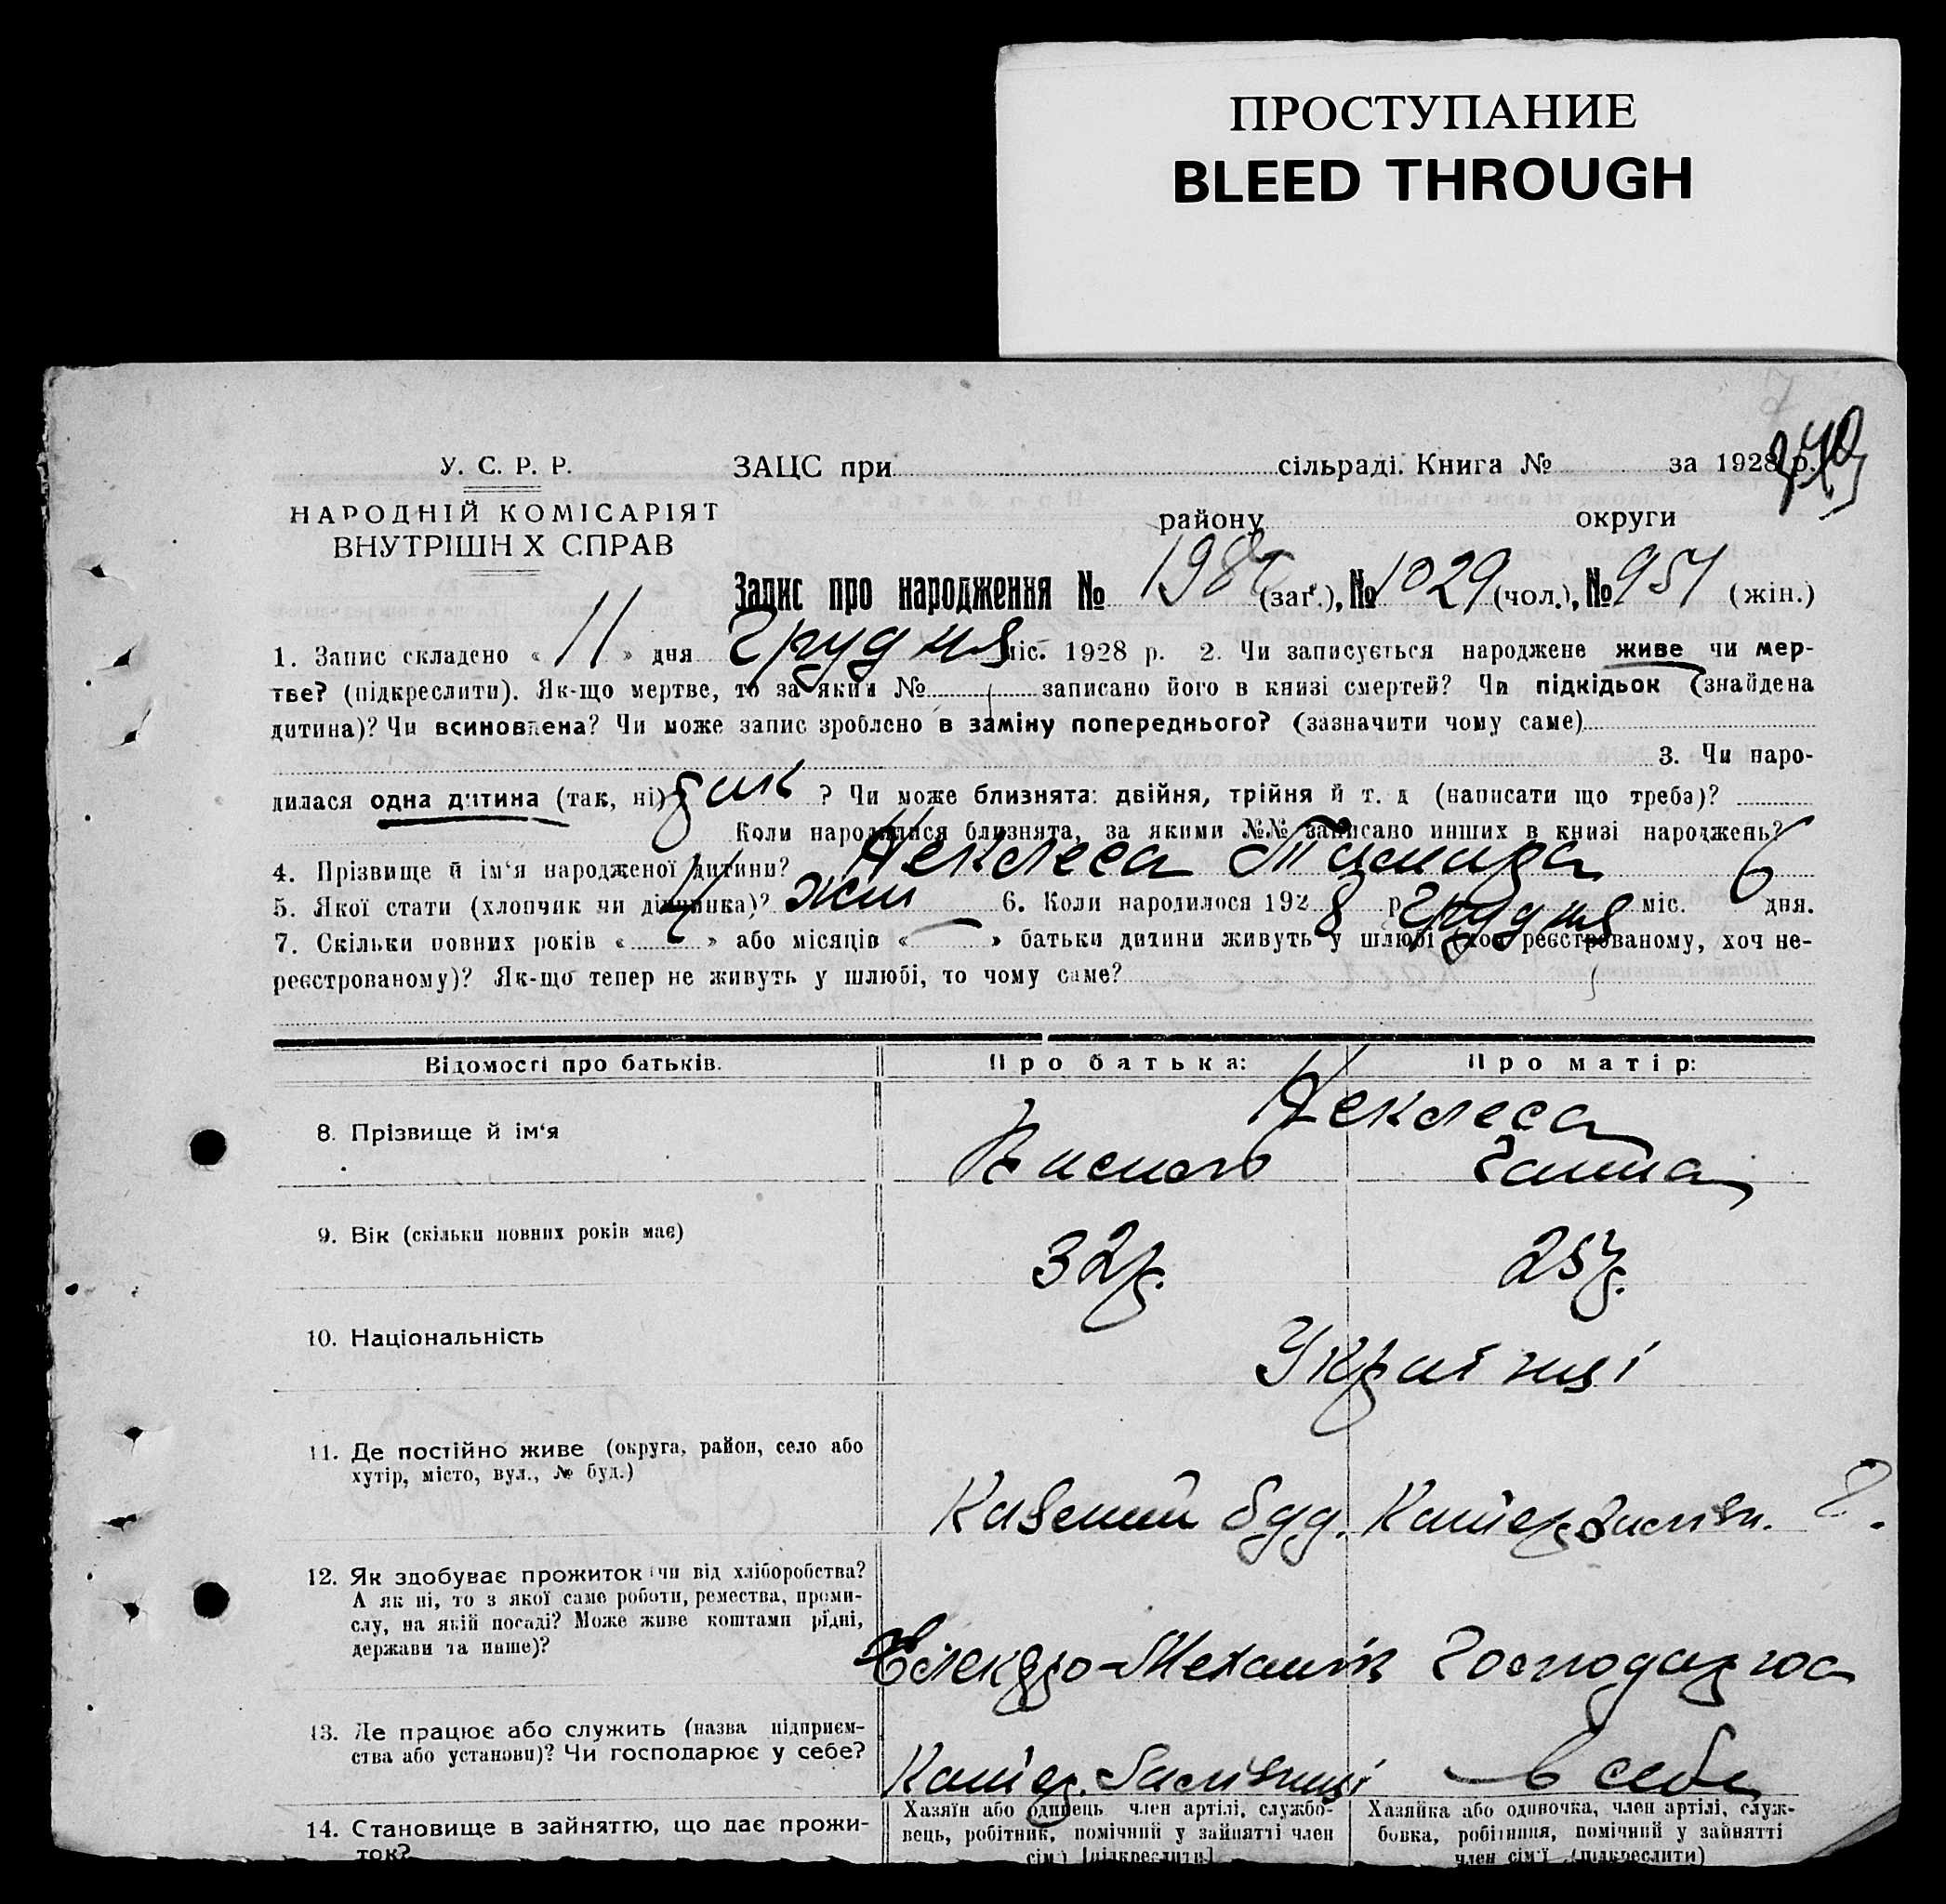 ПРОСТУПАНИЕ
BLEED THROUGH
У. С. Р. Р.
ЗАЦС при сільраді. Книга № за 1928 р.
НАРОДНІЙ КОМІСАРІЯТ
району округи
ВНУТРІШН Х СПРАВ
Запис про народження № 198 (заг.), № 1029 (чол.), № 951 (жін.)
1. Запис складено « 11 » дня Грудня міс. 1928 р. 2. Чи записується народжене живе чи мер-
тве? (підкреслити). Як-що мертве, то за яким № записано його в книзі смертей? Чи підкідьок (знайдена
дитина)? Чи всиновлена? Чи може запис зроблено в заміну попереднього? (зазначити чому саме)
3. Чи наро-
дилася одна дитина (так, ні) ? Чи може близнята: двійня, трійня й т. д (написати що треба)?
Коли народилися близнята, за якими №№ записано инших в книзі народжень?
4. Прізвище й ім'я народженої дитини? Неклеса Тамара
5. Якої стати (хлопчик чи дівчинка)? жін 6. Коли народилося 1928 р Грудня міс. 6 дня.
7. Скільки повних років « 4 » або місяців « — » батьки дитини живуть у шлюбі (хоч реєстрованому, хоч не-
реєстрованому)? Як-що тепер не живуть у шлюбі, то чому саме?
Відомості про батьків. Про батька: Про матір:
Неклеса
8. Прізвище й ім'я Ганна
9. Вік (скільки повних років має) 32 р. 25 р.
10. Національність Українці
11. Де постійно живе (округа, район, село або
хутір, місто, вул., № буд.)
Казений буд. 8.
12. Як здобуває прожиток (чи від хліборобства?
А як ні, то з якої саме роботи, ремества, проми-
слу, на якій посаді? Може живе коштами рідні,
держави та инше)?
Єлектро-Механік Господарює
13. Де працює або служить (назва підприєм-
ства або установи)? Чи господарює у себе?
в себе
14. Становище в зайняттю, що дає прожи-
ток?
Хазяїн або одинець член артілі, службо-
вець, робітник, помічний у зайнятті член
сім'ї [підкреслити]
Хазяйка або одиночка, член артілі, служ-
бовка, робітниця, помічний у зайнятті
член сім'ї (підкреслити)